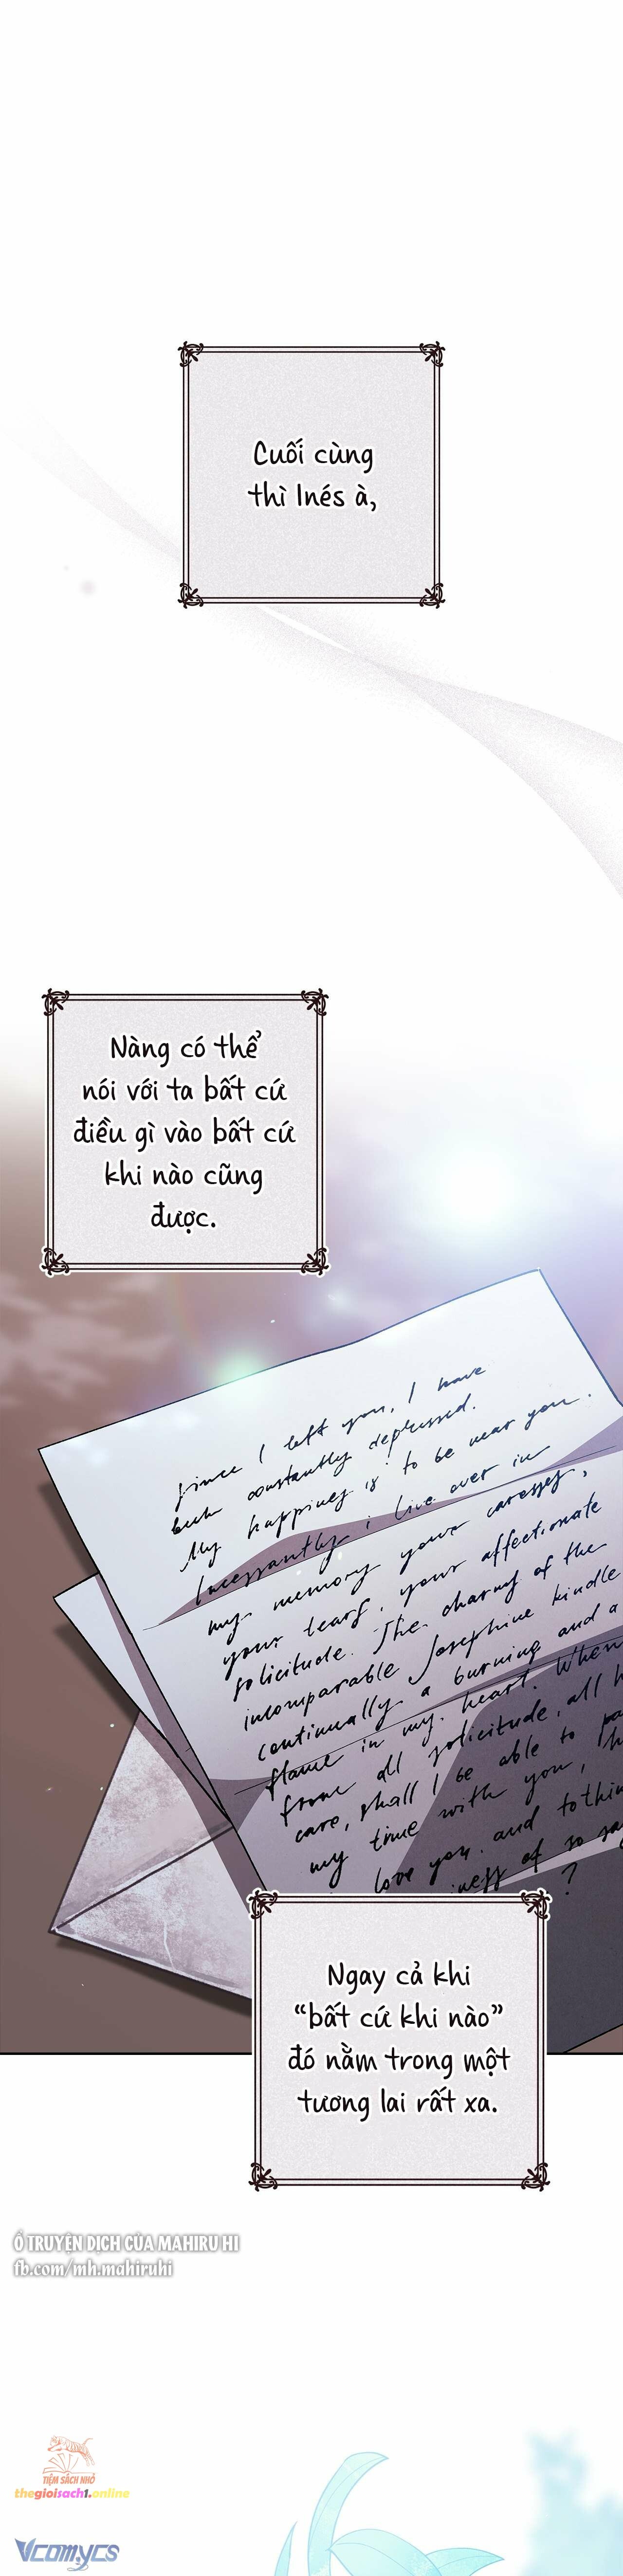 Cuối cùng
thì Inés à,
Nàng có thể
nói với ta bất cứ
điều gì vào bất cứ
khi nào cũng
được.
since I left you, I have
been constantly depressed.
My happiness is to be near you.
Incessantly i live over in
my memory your caresses,
your tears, your affectionate
solicitude. The charms of the
incomparable Josephine kindle
continually a burning and a
flame in my heart. When
from all solicitude, all h
care, shall I be able to pa
my time with you, h
love you and to thin
iness of so sa
?
Ngay cả khi
“bất cứ khi nào”
đó nằm trong một
tương lai rất xa.
Ổ TRUYỆN DỊCH CỦA MAHIRU HI
fb.com/mh.mahiruhi
TIỆM SÁCH NHỎ
thegioisach1.online
Vcomycs